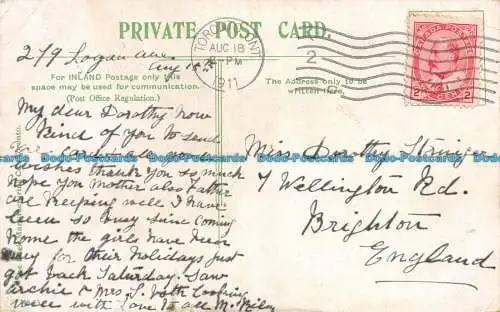 PRIVATE POST CARD.
279 Logan ave.
Aug 18th
TORONTO, ONT.
AUG 18
PM
1911
2
CANADA POSTAGE
2 2
For INLAND Postage only this
space may be used for communication.
(Post Office Regulation.)
The Address only to be
written here.
My dear Dorothy how
kind of you to send
me card all good
wishes thank you so much
hope you Mother also Father
are keeping well I have
been so busy since coming
home the girls have been
away for their holidays just
got back Saturday. Saw
Archie & Mrs S. both looking
well with love to all M.
Miss Dorothy
7 Wellington Rd.
Brighton
England
Postcards-Docards